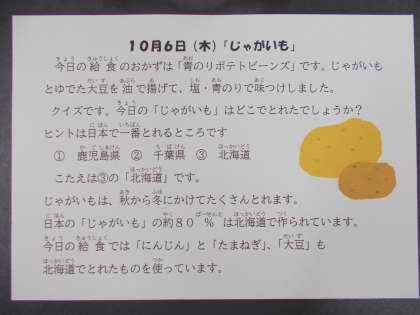 10月6日(木)「じゃがいも」
今日の給食のおかずは「青のりポテトビーンズ」です。じゃがいも
とゆでた大豆を油で揚げて、塩・青のりで味つけしました。
クイズです。今日の「じゃがいも」はどこでとれたでしょうか?
ヒントは日本で一番とれるところです
① 鹿児島県 ② 千葉県 ③ 北海道
こたえは③の「北海道」です。
じゃがいもは、秋から冬にかけてたくさんとれます。
日本の「じゃがいも」の約80%は北海道で作られています。
今日の給食では「にんじん」と「たまねぎ」、「大豆」も
北海道でとれたものを使っています。